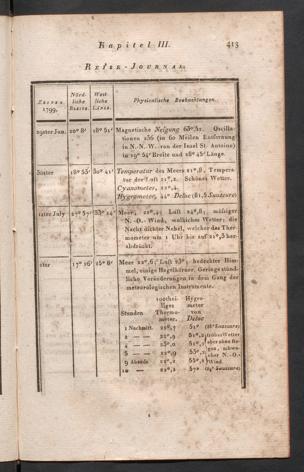 Kapitel III.
413
REISE-JOURNAL.
ZEITEN 1799.
Nörd-liche BREITE.
West-liche LÄNGE.
Physicalische Beobachtungen.
29ster Jun.
20° 8'
28° 51'
Magnetische Neigung
Oscilla-
tionen 236 (in 60 Meilen Entfernung
in N. N. W. von der Insel St. Antoine)
in 19° 54' Breite und 28° 45' Länge.
30ster
18° 55'
30° 41'
Temperatur des Meers 21°,8, Tempera-
tur der Luft 21°,2. Schönes Wetter.
Cyanometer, 22°,4.
Hygrometer, 44° Deluc (81,5 Saussure)
1ster July
17° 57'
33° 14'
Meer, 22°,4; Luft 24°,8; mäßiger
N.-O. Wind, wolkichtes Wetter, die
Nacht dichter Nebel, welcher das Ther-
mometer um 1 Uhr bis auf 21°,5 her-
abdrückt.
2ter
17° 26'
Meer 22°,6; Luft 23°; bedeckter Him-
mel, einige Hagelkörner. Geringe stünd-
liche Veränderungen in dem Gang der
meteorologischen Instrumente.
Stunden
100thei-liges Thermo-meter.
Hygro-meter von Deluc
1 Nachmitt. 22°,7 51° (86° Saussure)
2 — — 22°,9
4 — — 23°,0
5 — — 22°,9
9 Abends 22°,2
10 — — 22°,2 57°
trübes Wetter
aber ohne Re-
gen, schwa-
cher N.-O.-
Wind.